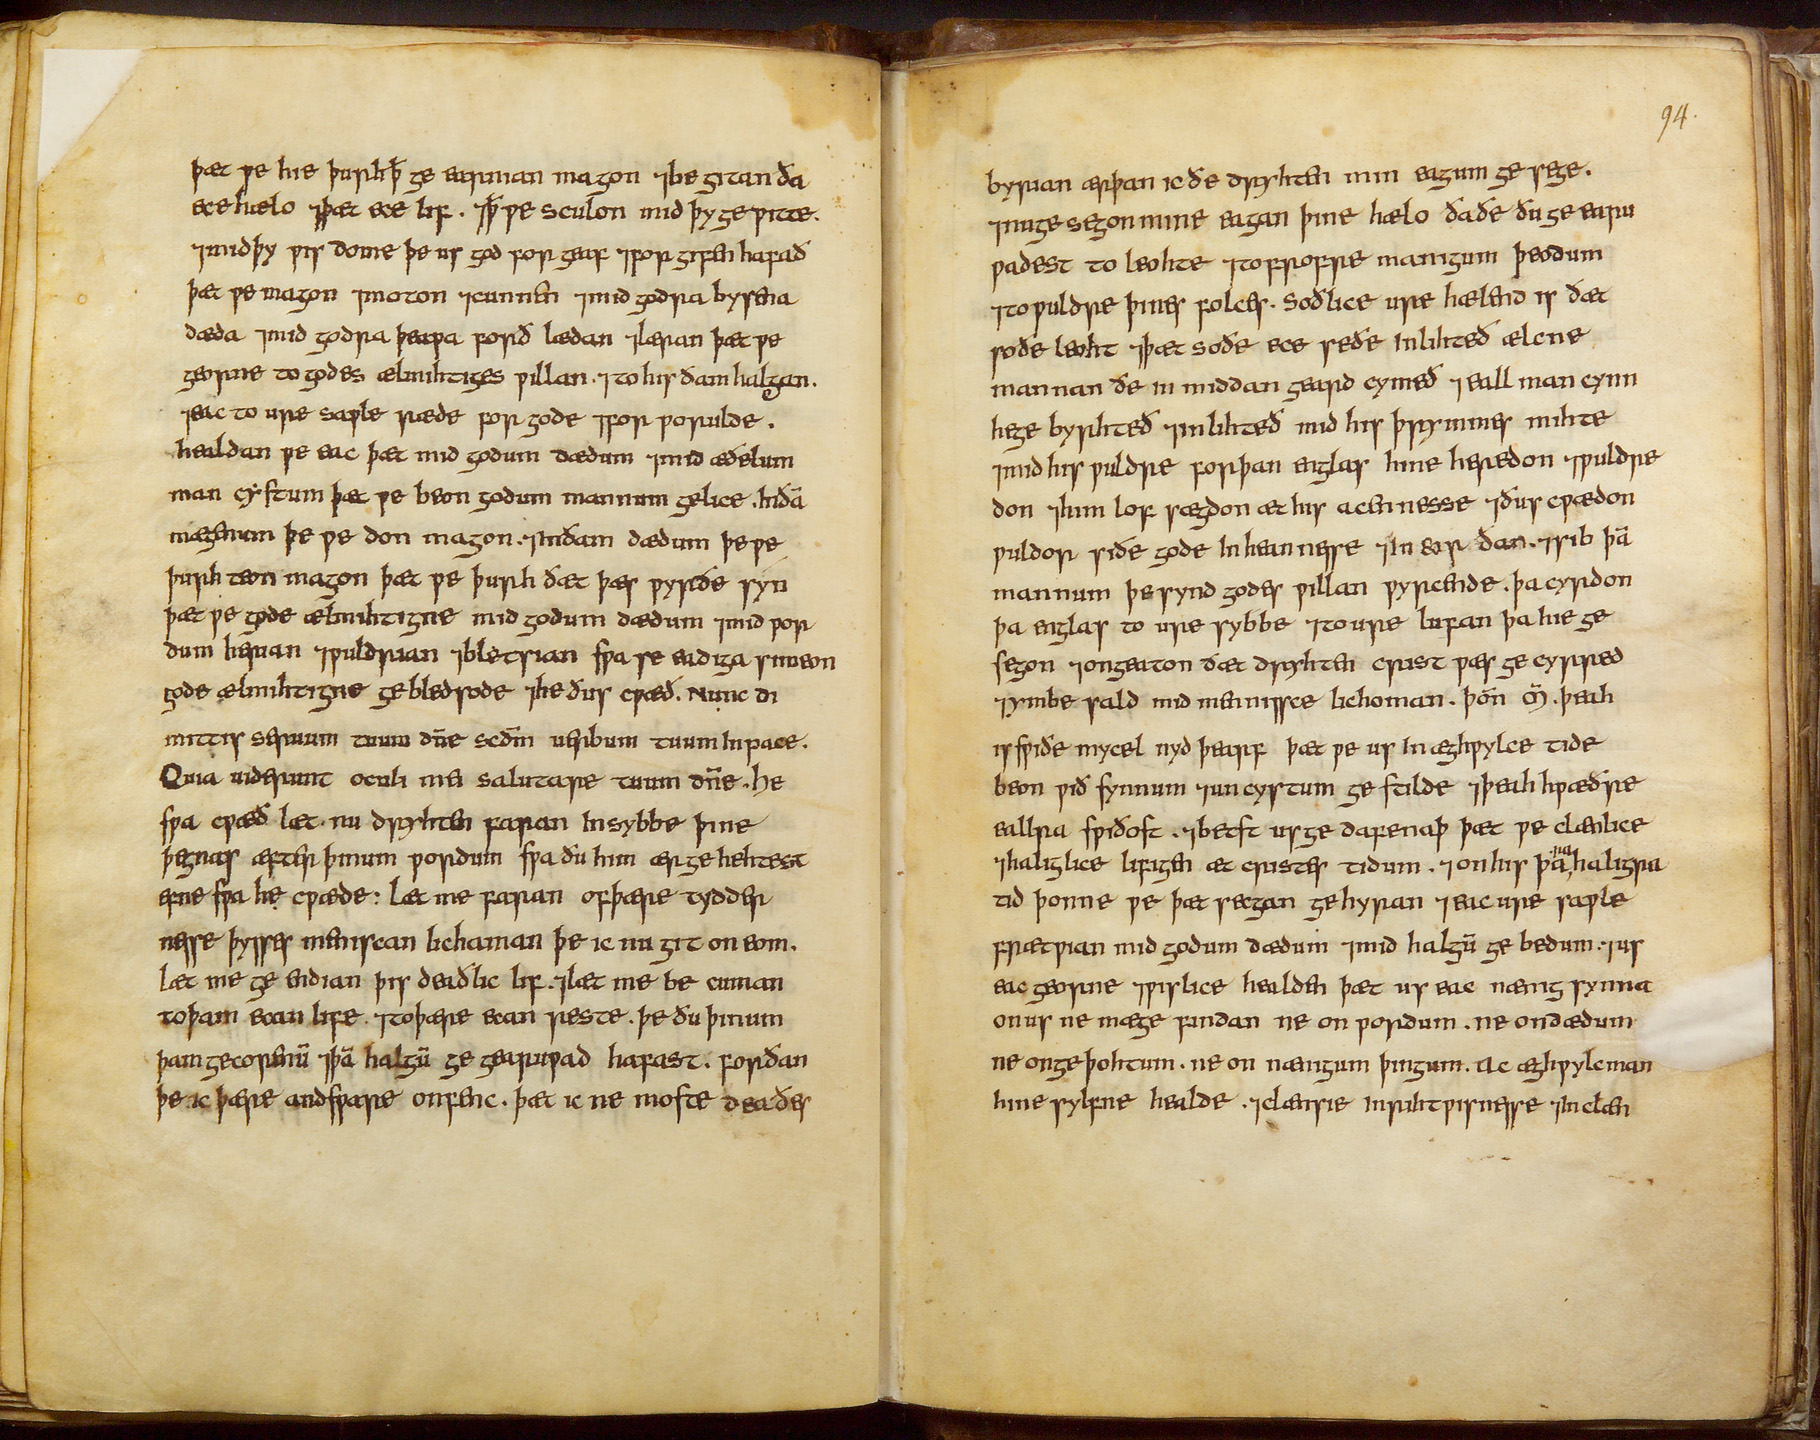 þæt ƿe hie þurh þ ge earnian magon ⁊ begitan ða
ece hælo ⁊ þæt ece lif . ⁊ þ ƿe sculon mid þy geƿitte .
⁊ mid þy ƿisdome þe us god forgeaf ⁊ forgifen hafað
þæt ƿe magon ⁊ moton ⁊ cunnen ⁊ mid godra bysena
dæda ⁊ mid godra þeaƿa forð lædan ⁊ læran þæt ƿe
georne to godes ælmihtiges ƿillan . ⁊ to his ðam halgan .
⁊ eac to ure saƿle ræde for gode ⁊ for ƿorulde .
healdan ƿe eac þæt mid godum dædum ⁊ mid æðelum
man cystum þæt ƿe beon godum mannum gelice . In ðā
mægenum þe ƿe don magon . ⁊ In ðam dædum þe ƿe
þurhteon magon þæt ƿe þurh ðæt þæs ƿyrðe syn
þæt ƿe gode ælmihtigne mid godum dædum ⁊ mid ƿor
dum herian ⁊ ƿuldrian ⁊ bletsian sƿa se eadiga simeon
gode ælmihtigne gebledsode ⁊ he ðus cƿæð . Nunc di
mittis seruum tuum dn̄e scdm̄ uerbum tuum In pace .
Quia uiderunt oculi mei salutare tuum dn̄e . he
sƿa cƿæð læt . nu dryhten faran In sybbe þine
þegnas æfter þinum ƿordum sƿa ðu him ær gehehtest
efne sƿa he cƿæde : Læt me faran of þære tydder
nesse þysses menniscan lichaman þe ic nu git on eom .
Læt me ge endian þis deaðlic lif . ⁊ læt me be cuman
to þam ecan life . ⁊ to þære ecan reste . þe ðu þinum
þam gecorenū ⁊ þā halgū ge gearuƿad hafast . forðan
þe ic þære andsƿare onfenc . þæt ic ne moste deaðes
94.
byrian ærþan ic ðe dryhten min eagum ge sege .
⁊ nu gesegon mine eagan þine hælo ða ðe ðu ge earu
ƿadest to leohte ⁊ to frofre manigum þeodum
⁊ to ƿuldre þines folces . Soðlice ure hælend is ðæt
soðe leoht ⁊ þæt soðe ece se ðe Inlihteð ælcne
mannan ðe in middan geard cymeð ⁊ eall man cynn
he ge byrhteð ⁊ inlihteð mid his þrymmes mihte
⁊ mid his ƿuldre forþan englas hine heredon ⁊ ƿuldre
don ⁊ him lof sægdon æt his acennesse ⁊ ðus cƿædon
ƿuldor si ðe gode In heannesse ⁊ In eor ðan . ⁊ sib þā
mannum þe synd godes ƿillan ƿyrcende . þa cyrdon
þa englas to ure sybbe ⁊ to ure lufan þa hie ge
segon ⁊ ongeaton ðæt dryhten crist ƿæs ge cyrred
⁊ ymbe sald mid mennisce lichoman . þoñ m̄ . þeah
is sƿiðe mycel nyd þearf þæt ƿe us In æghƿylce tide
beon ƿið synnum ⁊ uncystum ge stilde ⁊ þeah hƿæðre
eallra sƿiðost . ⁊ betst us ge dafenaþ þæt ƿe clænlice
⁊ haliglice lifigen æt cristes tidum . ⁊ on his þāna haligra
tid þonne ƿe þæt secgan gehyran ⁊ eac ure saƿle
frætƿian mid godum dædum ⁊ mid halgū ge bedum . ⁊ us
eac georne ⁊ ƿislice healden þæt us eac nænig synna
on us ne mæge findan ne on ƿordum . ne on dædum
ne on geþohtum . ne on nænigum þingum . Ac æghƿylc man
hine sylfne healde . ⁊ clænsie In rihtƿisnesse ⁊ In clæn